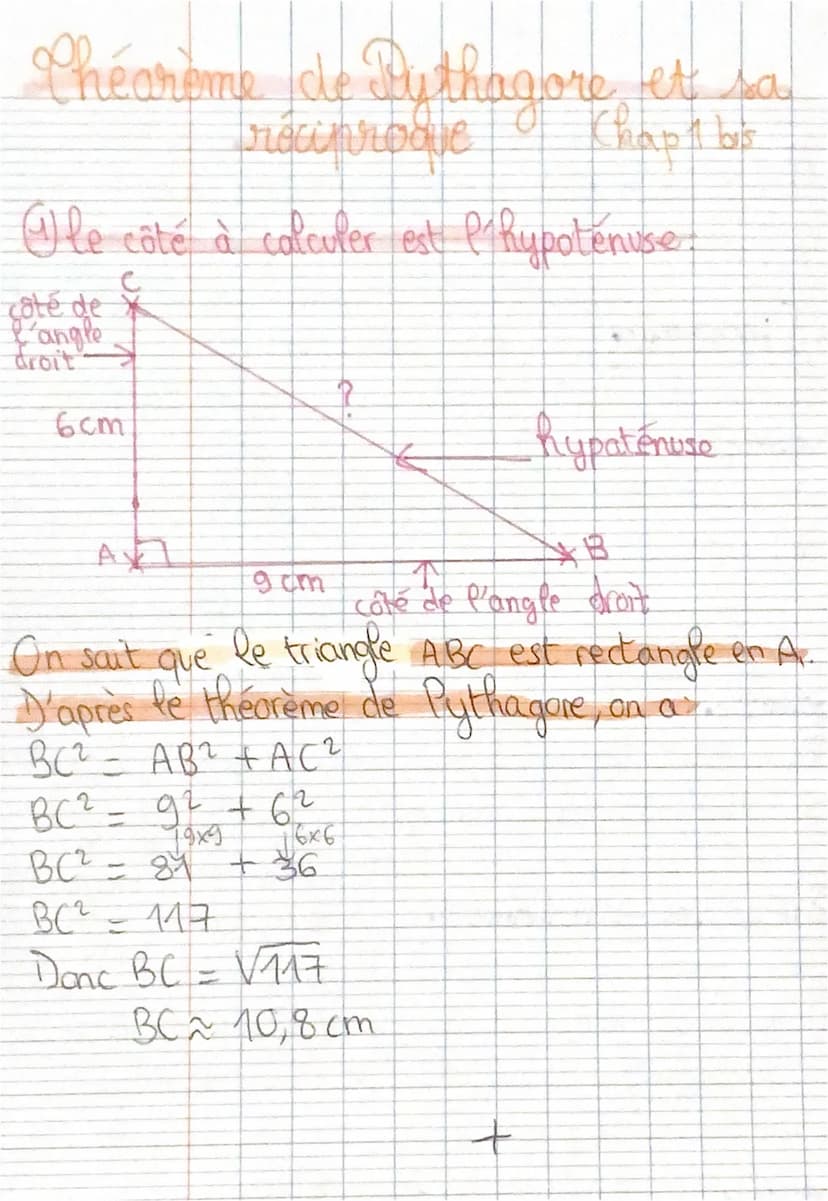 Théorème de Pythagore et sa
réciproque Chap 1 bis
1) le côté à calculer est l'hypoténuse.
C
côté de
l'angle
droit
?
6cm
hypaténuse
A
B
9 cm
côté de l'angle droit
On sait que le triangle ABC est rectangle en A.
D'après le théorème de Pythagore, on a:
BC² = AB² + AC²
BC² = 9² + 6²
9x9 6x6
BC² = 81 + 36
BC² = 117
Donc BC = √117
BC ≈ 10,8 cm
+